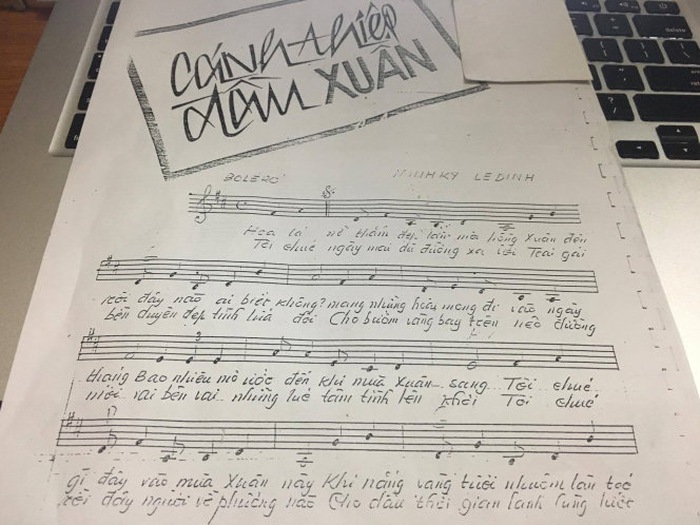 CÁNH THIỆP
ĐẦU XUÂN
BOLERO MINH KỲ LE DINH
Hoa lá nở thắm đẹp làn môi hồng Xuân đến
Tôi chúc ngày mai dù đường xa lối Trai gái
rồi đây nào ai biết không? mang những hoài mong đi vào ngày
bền duyên đẹp tình lứa đôi Cho bướm vàng bay trên nẻo đường
tháng Bao nhiêu mơ ước đến khi mùa Xuân sang Tôi chúc
mới vai bên vai những lúc tâm tình lên khơi Tôi chúc
gì đây vào mùa Xuân này Khi nắng vàng tươi nhuộm làn tóc
rồi đây người về phương nào Cho dẫu thời gian lạnh lùng bước